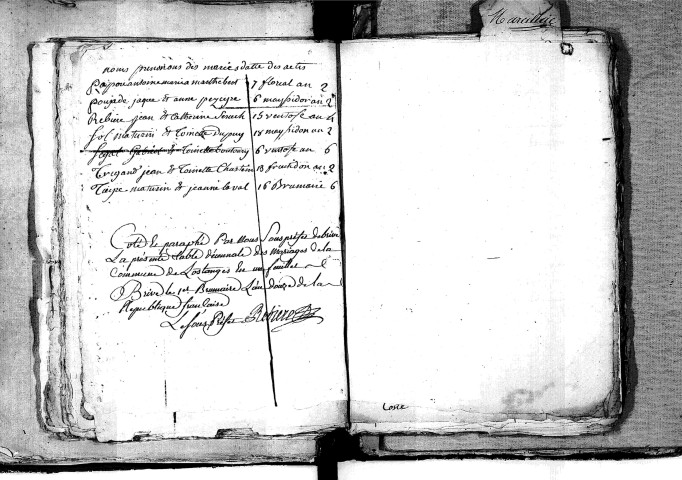 noms prenoms des mariés datte des actes
antoine maria marthe bert 7 floreal an 2
poujade jaque et anne peyeyre 6 messidor an 2
Rebiere jean et Catherine 15 ventose an 6
Sol maturin et Toinette dupuy 18 messidor an 2
Segal Gabriel et Toinette 6 ventose an 6
Trigand jean et Toinette Chastein 13 fructidor an 2
Taipe maturin et jeanne laval 16 Brumaire 6
Coté et paraphé Par Nous Sous préfet de brive
La présente Table décennale des Mariages de la
Commune de Lostanges en un feuillet
Brive le 1er Brumaire L'an douze de la
République française
Le Sous Préfet
Marcillac